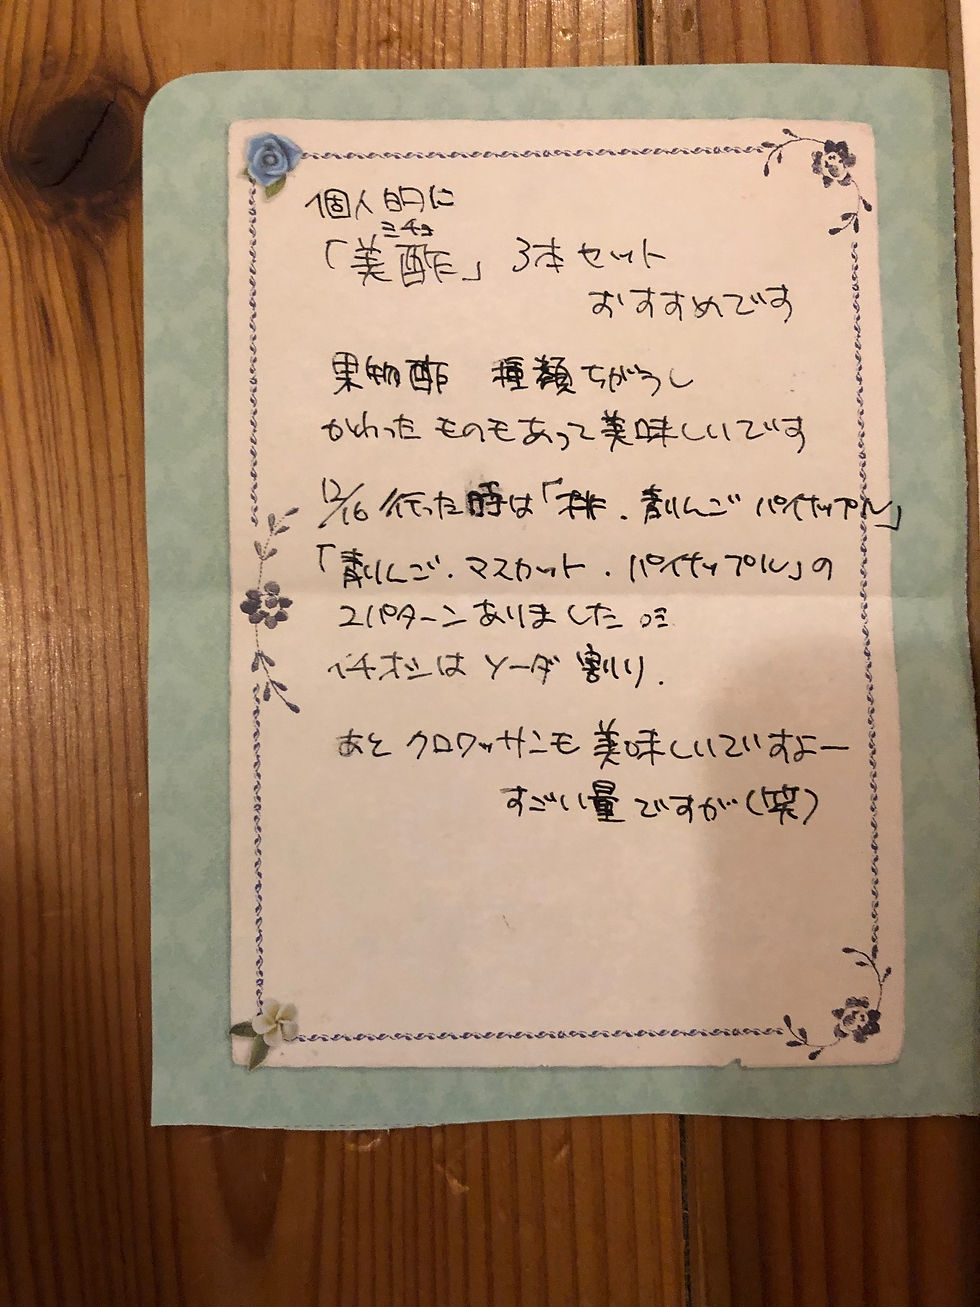 個人的に
ミチョ
「美酢」 3本セット
おすすめです
果物酢 種類ちがうし
かわったものもあって美味しいです
12/16 行った時は「桃.青りんご パイナップル」
「青りんご.マスカット.パイナップル」の
2パターンありました
イチオシは ソーダ割り.
あと クロワッサンも 美味しいですよー
すごい量ですが(笑)